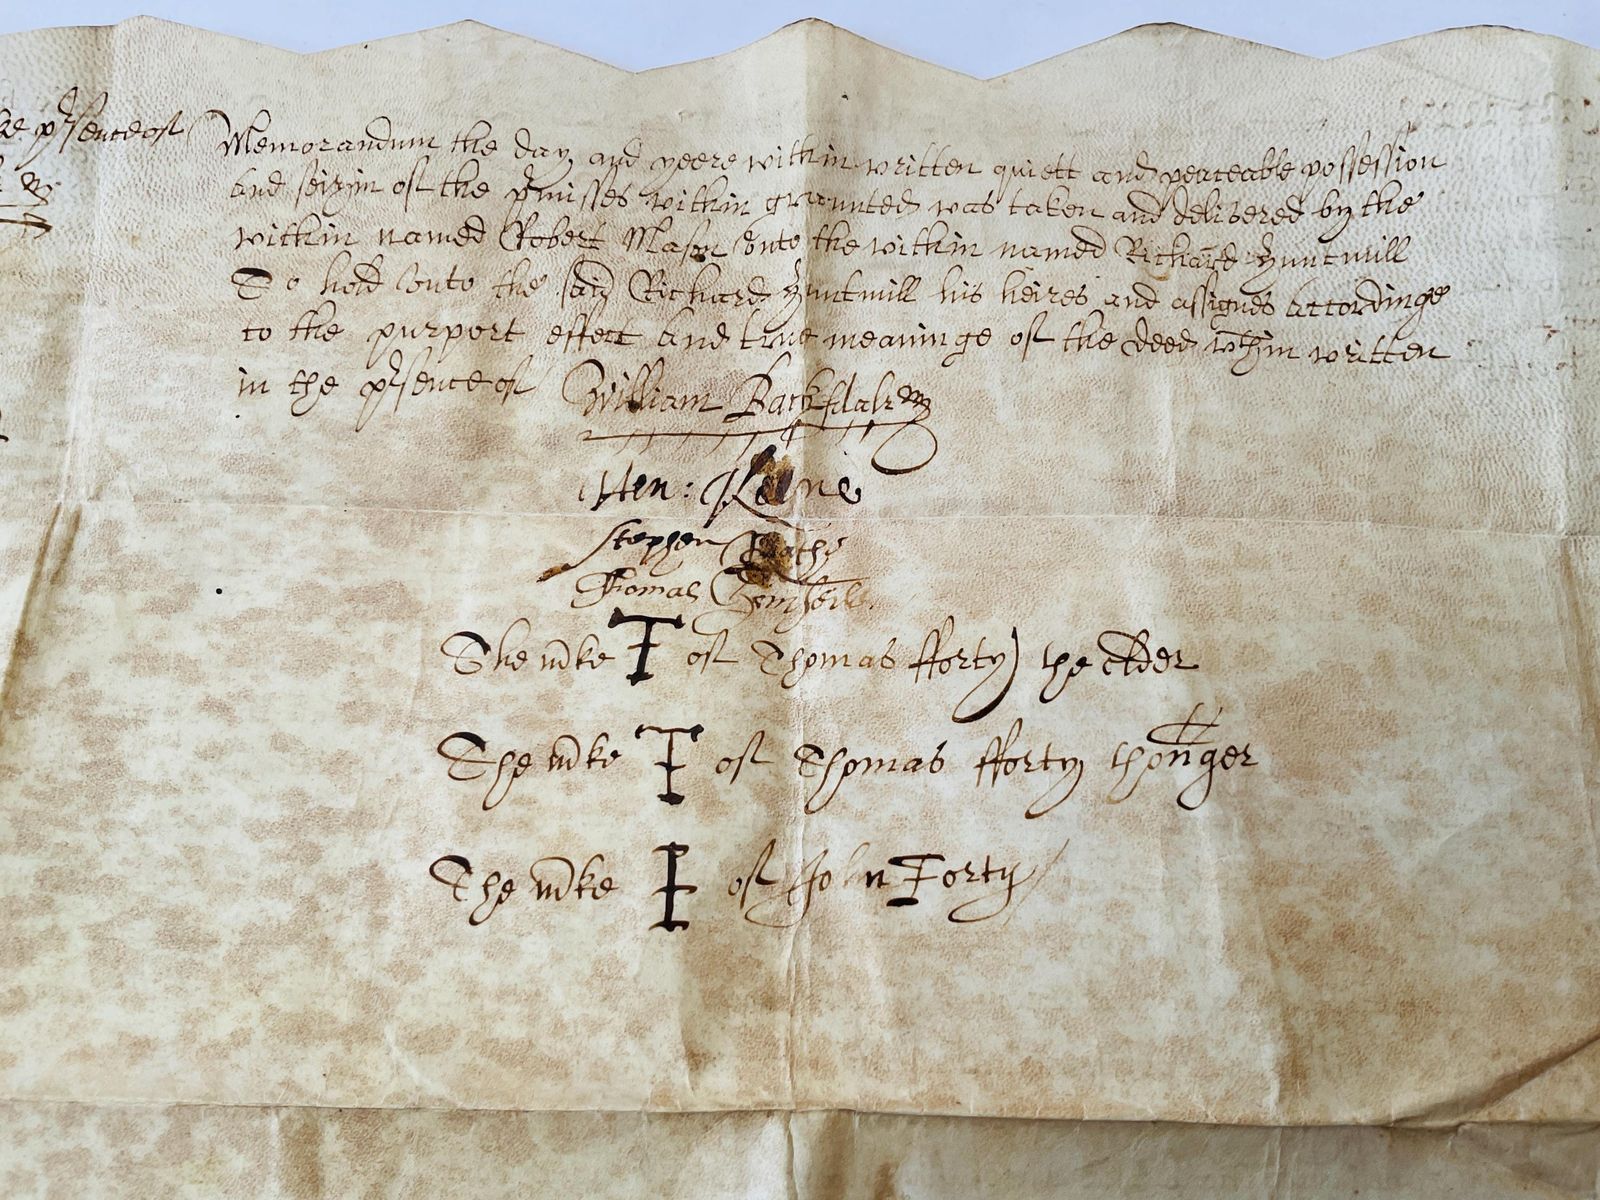 p'sence of
Memorandum the day and yeere within written quiett and peaceable possession
And seizin of the p'misses within graunted was taken and delivered by the
within named Robert Mason unto the within named Richard Huntmill
To hold unto the said Richard Huntmill his heires and assignes accordinge
to the purport effect And true meaninge of the deed wthin written
in the p'sence of William Barksdale
Hen: Keine
Stephen
Thomas
The m'ke T of Thomas fforty the elder
The m'ke T of Thomas fforty the yonger
The m'ke I of John Forty